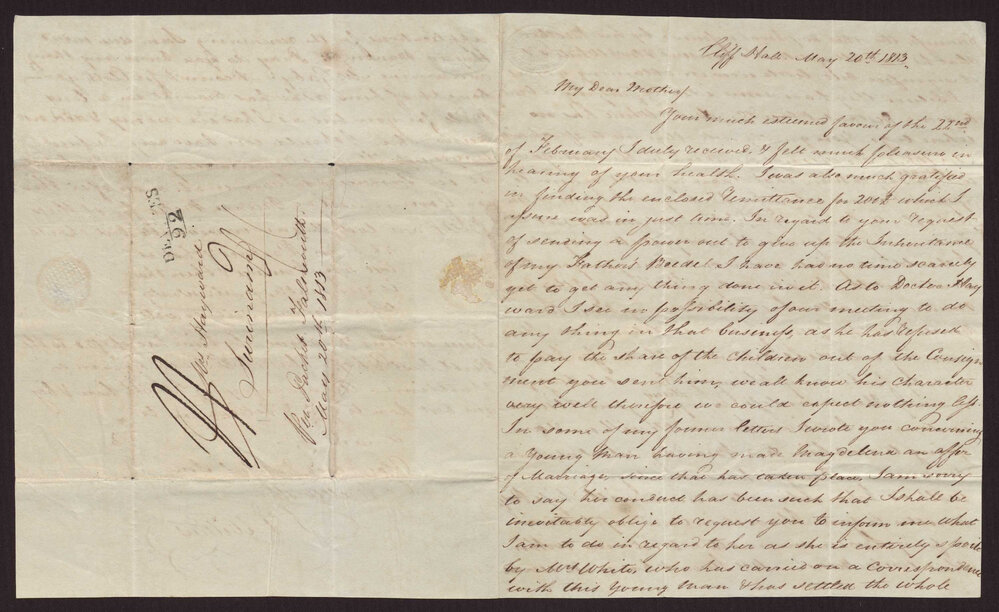 DE
ES
22
Mrs Hayward
Surinam
Per Packet Falmouth.
May 20th 1813
Cliff Hall May 20th 1813.
My Dear Mother
Your much esteemed favour of the 22nd
of February I duly received & felt much pleasure in
hearing of your health. I was also much gratified
in finding the enclosed Remittance for which I
assure was in just time. In regard to your request
of sending a power out to give up the Inheritance
of my Father's I have had no time scarcely
yet to get any thing done in it. As to Doctor Hay
ward I see no possibility of our meeting to do
any thing in that business, as he has refused
to pay the share of the Children out of the Consign
ment you sent him, we all know his character
very well therefore we could expect nothing less
In some of my former letters I wrote you concerning
a Young Man having made Magdelina an offer
of Marriage, since that has taken place, I am sorry
to say her conduct has been such that I shall be
inevitably oblige to request you to inform me what
I am to do in regard to her as she is entirely spoilt
by Mrs White, who has carried on a Correspondence
with this Young Man & has settled the whole